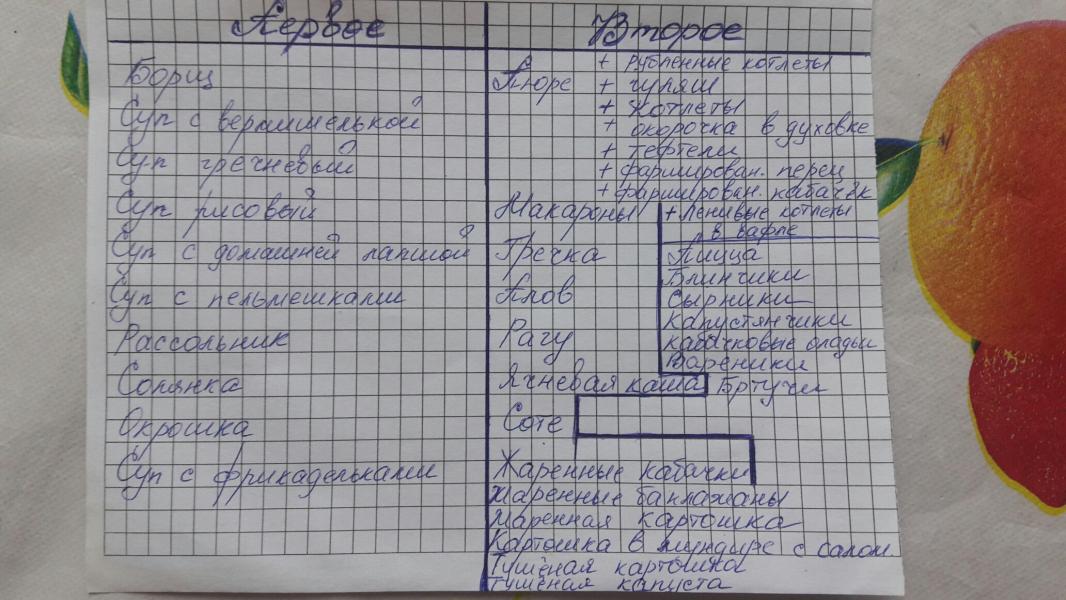 Первое
Борщ
Суп с вермишелькой
Суп гречневый
Суп рисовый
Суп с домашней лапшой
Суп с пельмешками
Рассольник
Солянка
Окрошка
Суп с фрикадельками
Второе
Пюре + рубленные котлеты
+ гуляш
+ котлеты
+ окорочка в духовке
+ тефтели
+ фарширован. перец
+ фарширован. кабачёк
Макароны + ленивые котлеты
в вафле
Гречка
Плов
Рагу
Ячневая каша
Соте
Пицца
Блинчики
Сырники
Капустянчики
Кабачковые оладьи
Вареники
Бртучи
Жаренные кабачки
Жаренные баклажаны
Жаренная картошка
Картошка в мундире с салом
Тушёная картошка
Тушёная капуста